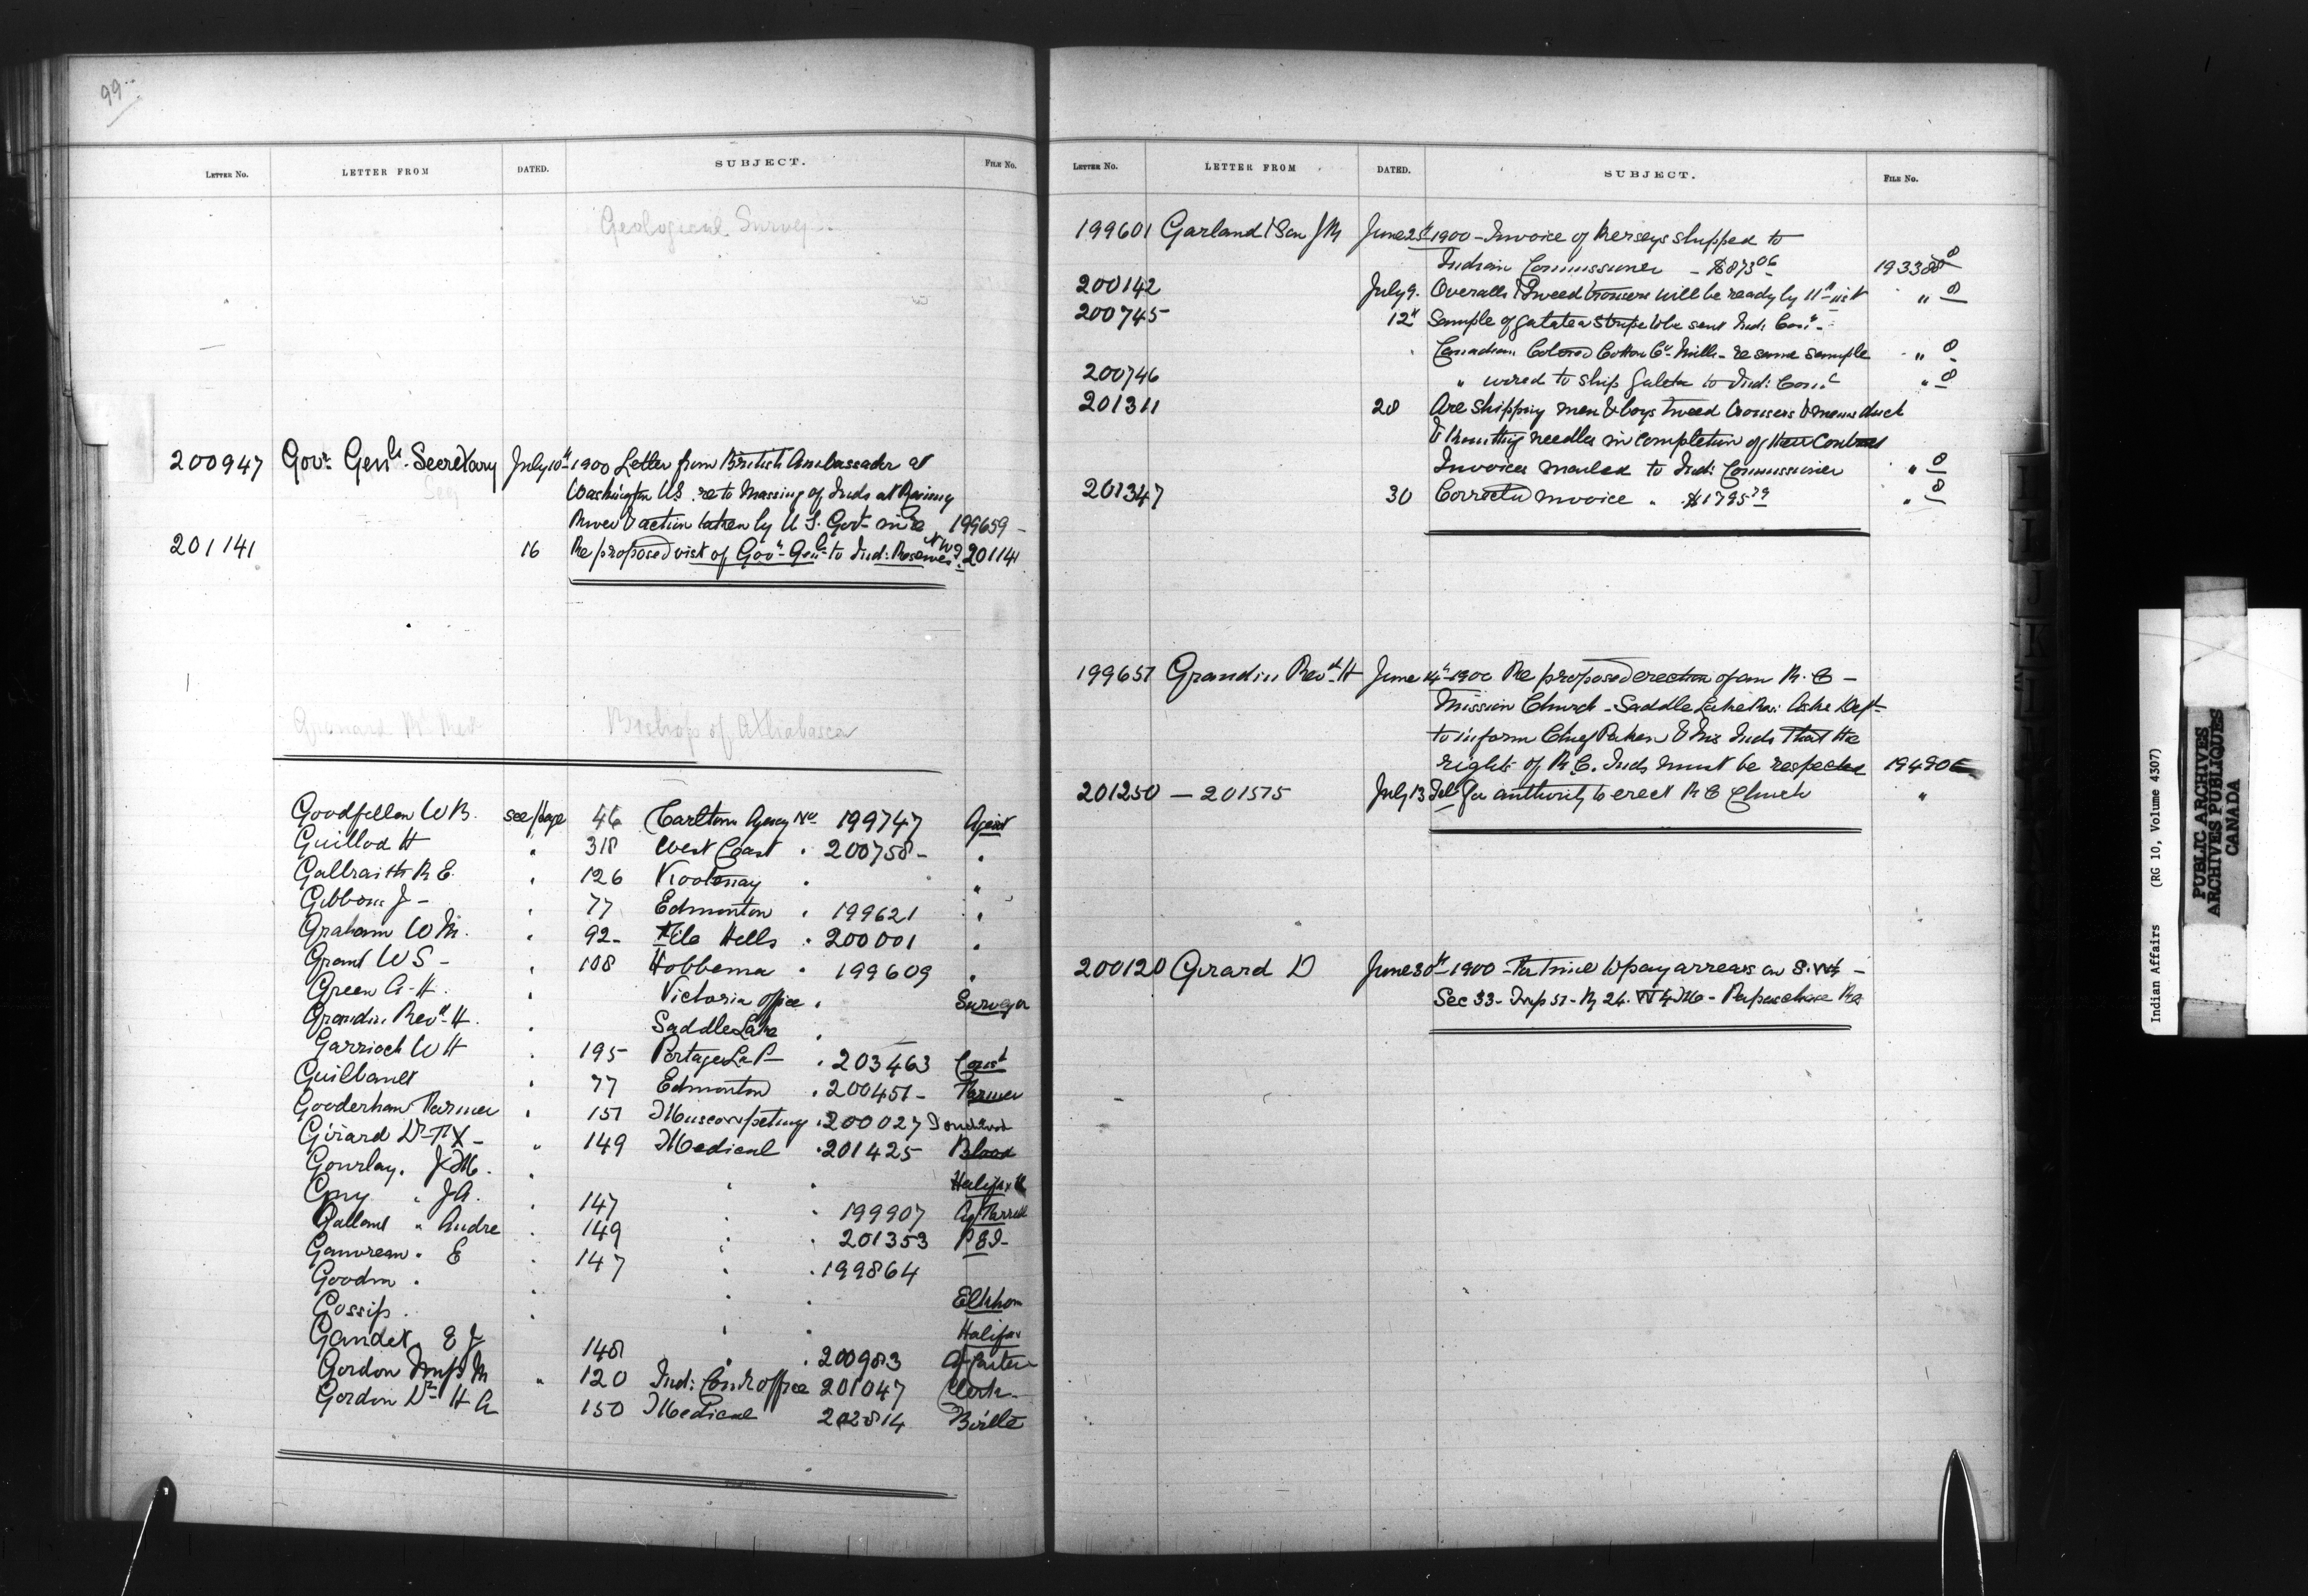 99
LETTER NO. LETTER FROM DATED. SUBJECT. FILE NO.
Geological Survey
200947 Govr. Genl's. Secretary July 10th 1900 Letter from British Ambassador at
Washington US. re to massing of Inds at Rainy
River & action taken by U S. Govt. in re 199659 -
201141 16 Re proposed visit of Govr. Genl. to Ind: Reserves NWT. 201141
Grouard Rt Rev Bishop of Athabasca
Goodfellow W B. see page 46 Carlton Agency No 199747 Agent
Guillod H " 318 West Coast " 200758 - "
Galbraith R E. " 126 Kootenay " "
Gibbons J - " 77 Edmonton " 199621 "
Graham W M. " 92 - File Hills " 200001 "
Grant W S - " 108 Hobbema " 199609 "
Green A. H. " Victoria office " Surveyor
Grandin Revd. H. " Saddle Lake "
Garrioch W H " 195 Portage La P - " 203463 Const
Guilbault " 77 Edmonton " 200451 - Farmer
Gooderham Farmer " 151 Muscowpetung " 200027
Girard Dr F X - " 149 Medical " 201425 Blood
Gourlay. J M. " " " Halifax
Guy " J A. " 147 " " 199907
Gallant " Andre " 149 " " 201353 P E I -
Gauvreau " E " 147 " " 199864
Goodwin " " " " Elkhorn
Gossip . " " " Halifax
Gandet E J 148 " " 200983
Gordon M " 120 Ind: Comr office 201047 Clerk -
Gordon Dr. H A 150 Medical 202814
LETTER NO. LETTER FROM DATED. SUBJECT. FILE NO.
199601 Garland & Son J M June 25th 1900 - Invoice of Kerseys shipped to
Indian Commissioner - $873.06 - 193388
200142 July 9. Overalls & Tweed trousers will be ready by 11th inst " 8
200745 12th Sample of galatea stripe to be sent Ind: Comr. -
Canadian Colored Cotton Co. Mills - re same sample " 8
200746 " wired to ship galatea to Ind: Comr " 8
201311 28 Are shipping men & boys tweed trousers & mens duck
& knitting needles in completion of their contract
Invoices mailed to Ind: Commissioner " 8
201347 30 Corrected invoice " $1795.79 " 8
199657 Grandin Revd. H June 14th 1900 Re proposed erection of an R. C -
Mission Church - Saddle Lake Res: Asks Dept
to inform Chief Pakan & his Inds that the
rights of R C. Inds must be respected 194906
201250 - 201575 July 13 for authority to erect R C Church "
200120 Girard D June 30th 1900 - to pay arrears on S. W 1/4 -
Sec 33 - Twp 51 - R 26. W 4 M -
Indian Affairs (RG 10, Volume 4307)
PUBLIC ARCHIVES
ARCHIVES PUBLIQUES
CANADA
I
J
K